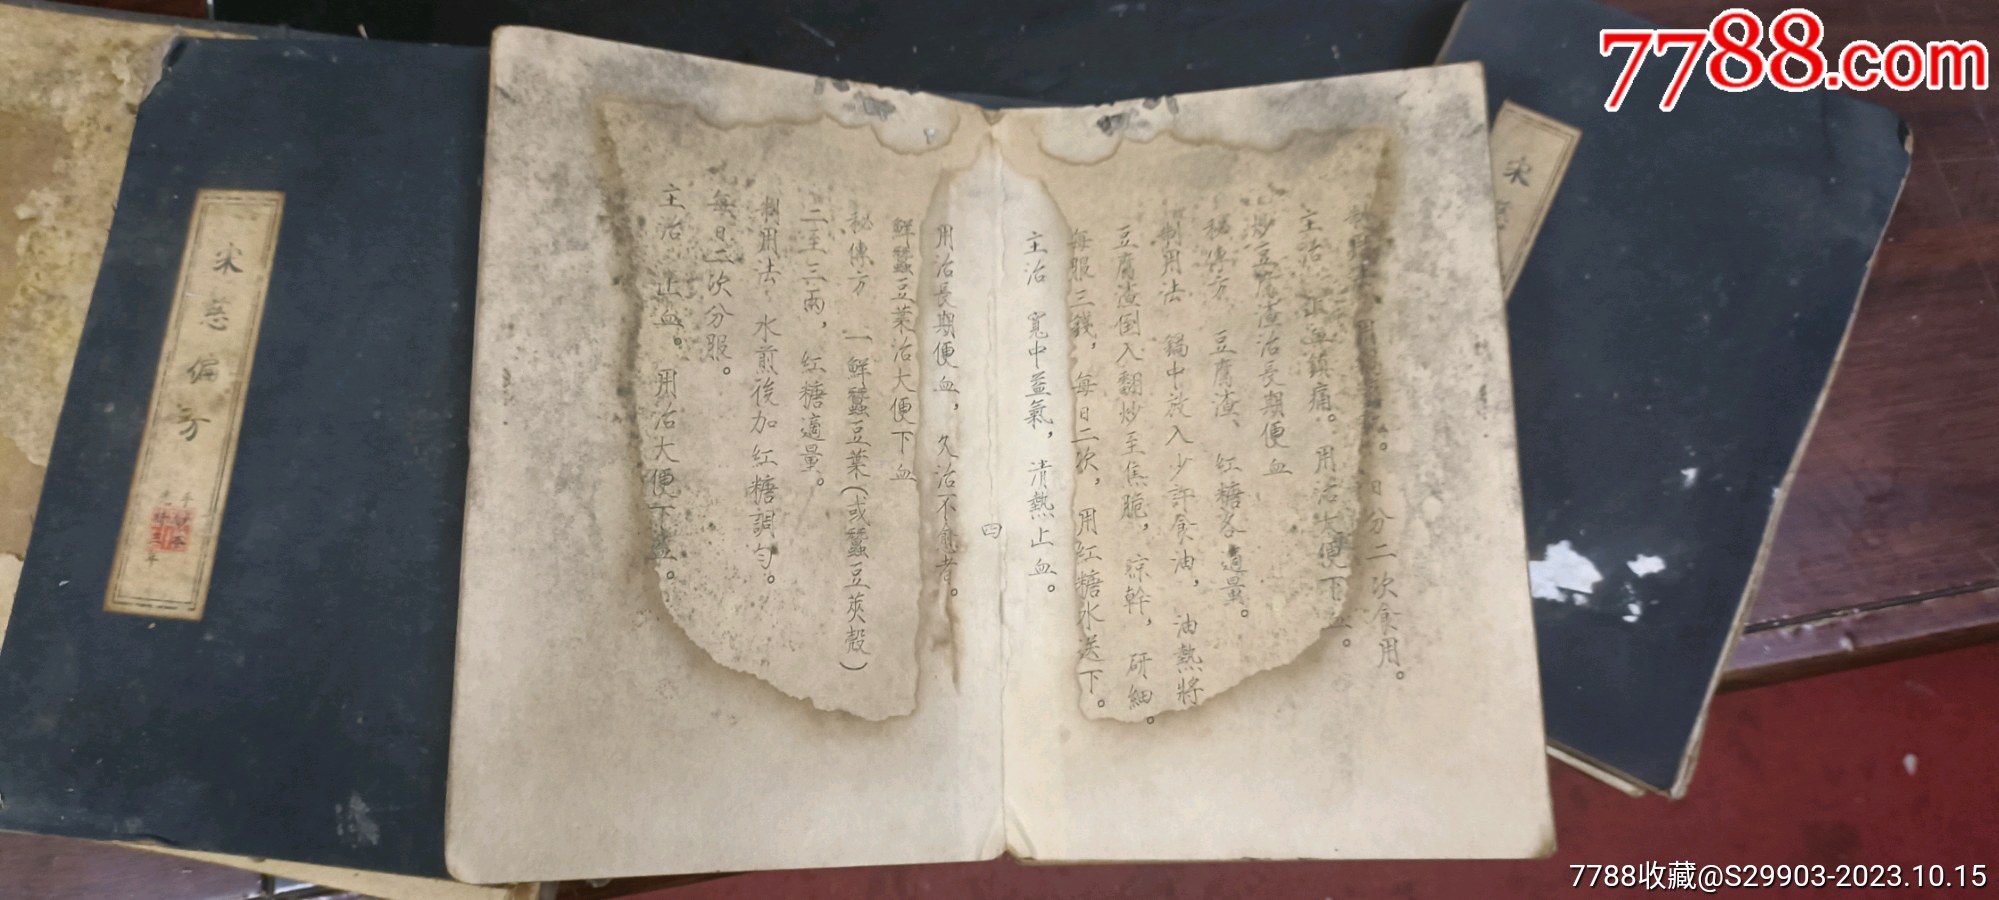 7788.com
宋慈偏方
宋
日分二次食用。
主治 止血鎮痛。用治大便下血。
炒豆腐渣治長期便血
秘傳方 豆腐渣、紅糖各適量。
制用法 鍋中放入少許食油,油熱將
豆腐渣倒入翻炒至焦脆,涼幹,研細。
每服三錢,每日二次,用紅糖水送下。
主治 寬中益氣,清熱止血。
四
用治長期便血,久治不愈者。
鮮蠶豆葉治大便下血
秘傳方 一鮮蠶豆葉(或蠶豆莢殼)
二至三兩,紅糖適量。
制用法 水煎後加紅糖調勻。
每日二次分服。
主治 止血。用治大便下血。
7788收藏@S29903-2023.10.15